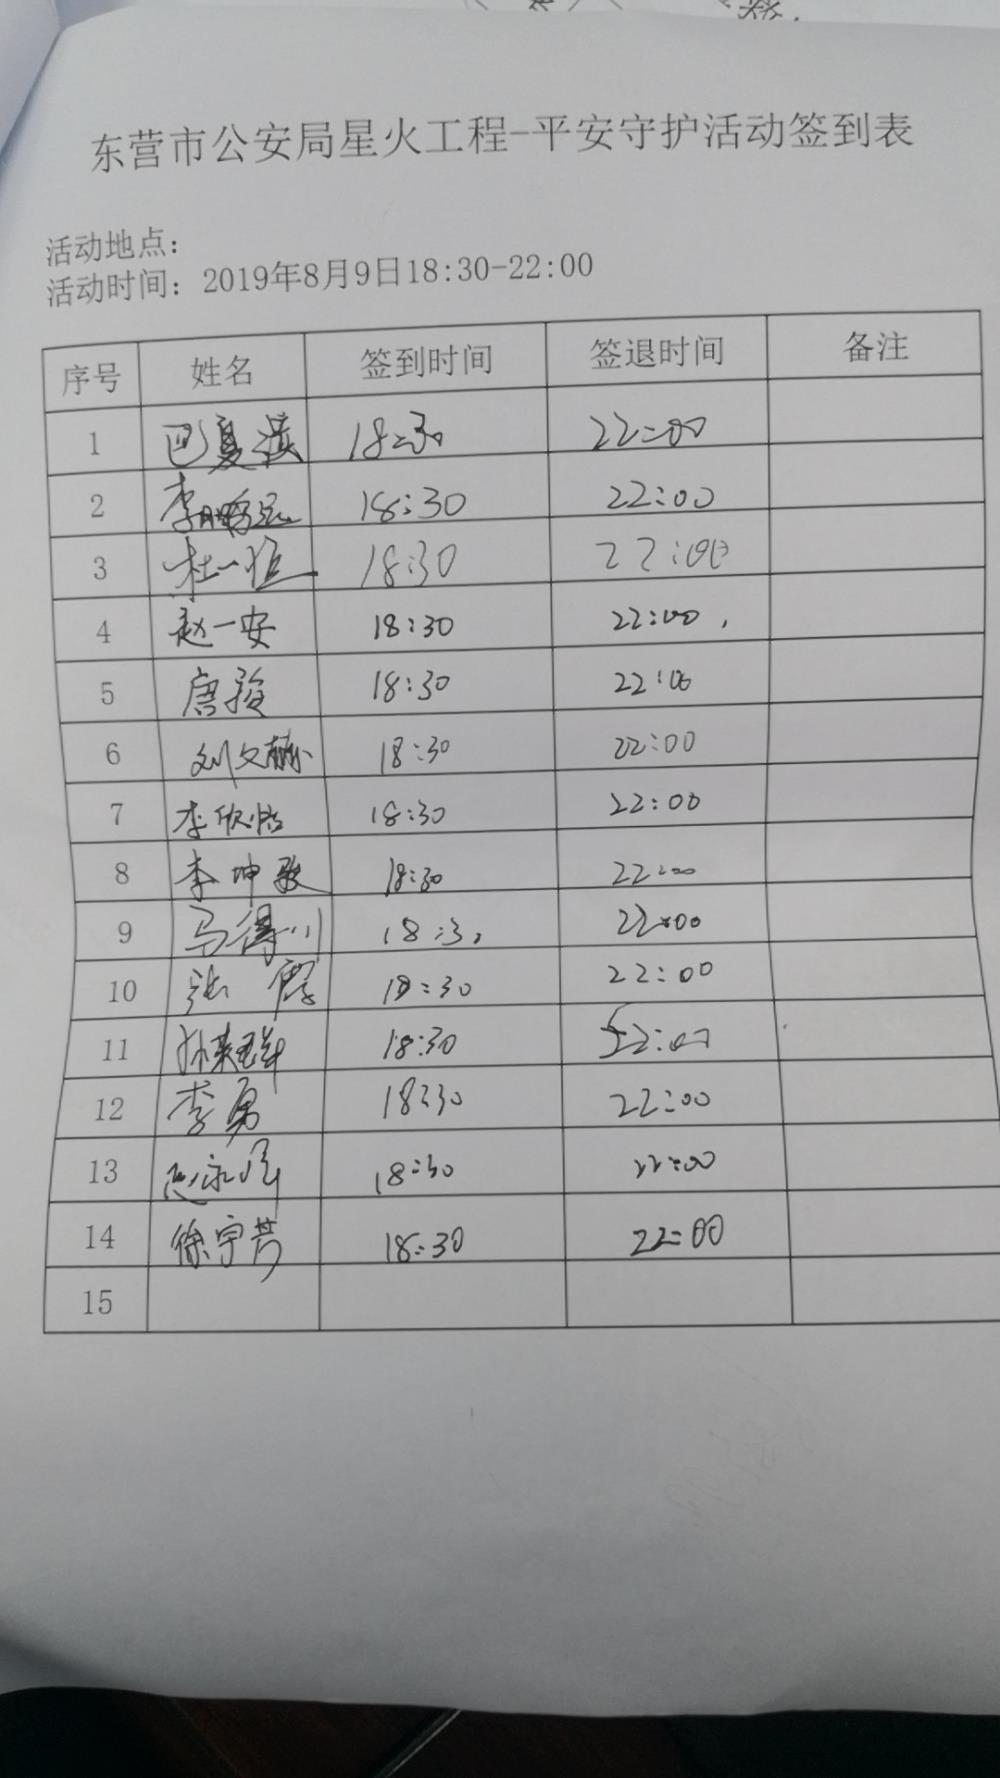 东营市公安局星火工程-平安守护活动签到表
活动地点：
活动时间：2019年8月9日18:30-22:00
序号 姓名 签到时间 签退时间 备注
1 巴夏 18:30 22:00
2 李鹏远 18:30 22:00
3 杜一恒 18:30 22:00
4 赵一安 18:30 22:00
5 唐骏 18:30 22:00
6 刘文赫 18:30 22:00
7 李欣怡 18:30 22:00
8 李坤毅 18:30 22:00
9 马得川 18:30 22:00
10 张霞 18:30 22:00
11 孙 18:30 22:00
12 李勇 18:30 22:00
13 18:30 22:00
14 徐宇芳 18:30 22:00
15